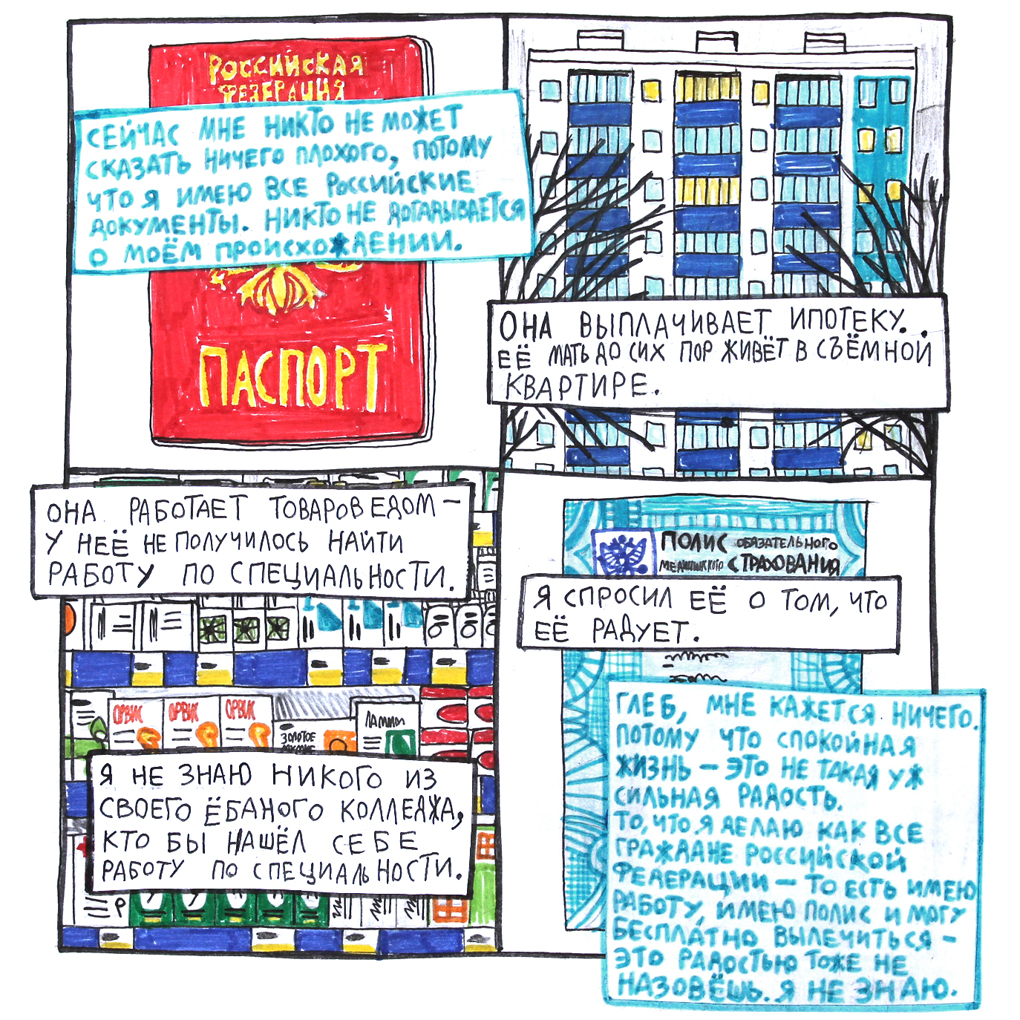 РОССИЙСКАЯ
ФЕДЕРАЦИЯ
СЕЙЧАС МНЕ НИКТО НЕ МОЖЕТ
СКАЗАТЬ НИЧЕГО ПЛОХОГО, ПОТОМУ
ЧТО Я ИМЕЮ ВСЕ РОССИЙСКИЕ
ДОКУМЕНТЫ. НИКТО НЕ ДОГАДЫВАЕТСЯ
О МОЁМ ПРОИСХОЖДЕНИИ.
ПАСПОРТ
ОНА ВЫПЛАЧИВАЕТ ИПОТЕКУ..
ЕЁ МАТЬ ДО СИХ ПОР ЖИВЁТ В СЪЁМНОЙ
КВАРТИРЕ.
ОНА РАБОТАЕТ ТОВАРОВЕДОМ —
У НЕЁ НЕ ПОЛУЧИЛОСЬ НАЙТИ
РАБОТУ ПО СПЕЦИАЛЬНОСТИ.
ОРВИС ОРВИС ОРВИС
ЗОЛОТОЕ
Я НЕ ЗНАЮ НИКОГО ИЗ
СВОЕГО ЁБАНОГО КОЛЛЕДЖА,
КТО БЫ НАШЁЛ СЕБЕ
РАБОТУ ПО СПЕЦИАЛЬНОСТИ.
ПОЛИС ОБЯЗАТЕЛЬНОГО
МЕДИЦИНСКОГО СТРАХОВАНИЯ
Я СПРОСИЛ ЕЁ О ТОМ, ЧТО
ЕЁ РАДУЕТ.
ГЛЕБ, МНЕ КАЖЕТСЯ НИЧЕГО.
ПОТОМУ ЧТО СПОКОЙНАЯ
ЖИЗНЬ — ЭТО НЕ ТАКАЯ УЖ
СИЛЬНАЯ РАДОСТЬ.
ТО, ЧТО Я ДЕЛАЮ КАК ВСЕ
ГРАЖДАНЕ РОССИЙСКОЙ
ФЕДЕРАЦИИ — ТО ЕСТЬ ИМЕЮ
РАБОТУ, ИМЕЮ ПОЛИС И МОГУ
БЕСПЛАТНО ВЫЛЕЧИТЬСЯ —
ЭТО РАДОСТЬЮ ТОЖЕ НЕ
НАЗОВЁШЬ. Я НЕ ЗНАЮ.